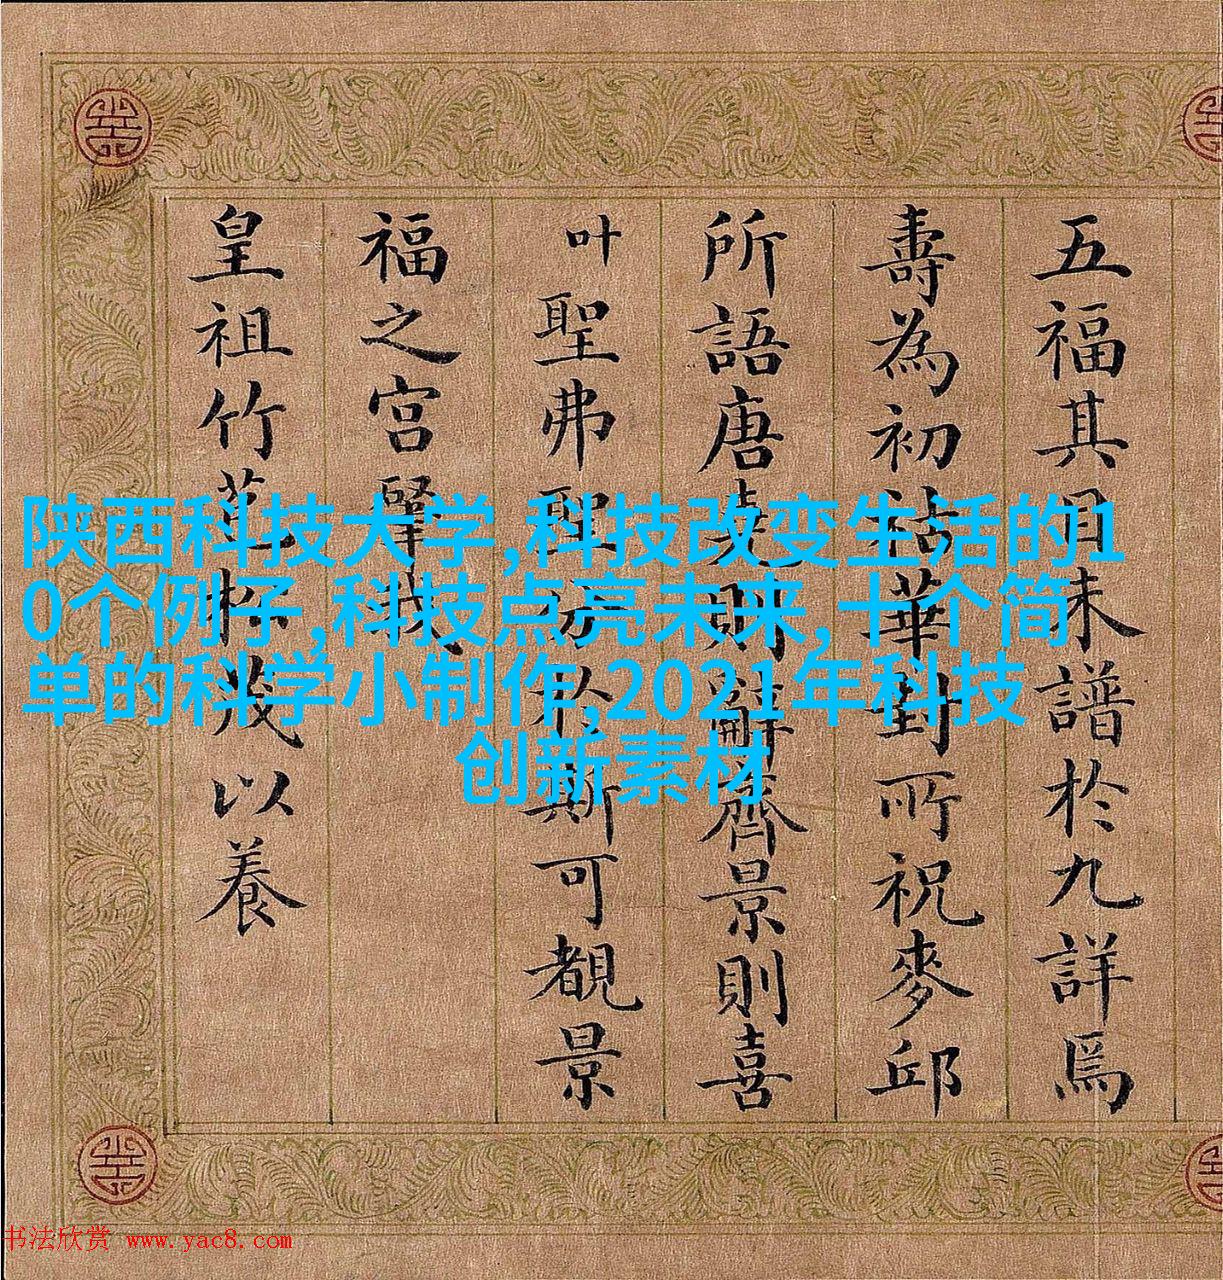 五福其目未譜於九詳焉
壽為初祜華對所祝麥邱
所語唐堯則辭齊景則喜
叶聖弗聖分於斯可覩景
福之宮肇我
皇祖竹苞松茂以養
陕西科技大学,科技改变生活的1
0个例子,科技点亮未来,十个简
单的科学小制作,2021年科技
创新素材
书法欣赏 www.yac8.com